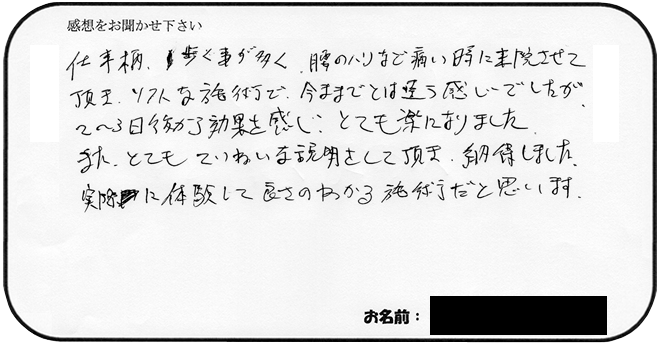 感想をお聞かせ下さい
仕事柄、歩く事が多く、腰のハリなど痛い時に来院させて
頂き、ソフトな施術で、今ままでとは違う感じでしたが、
2〜3日後から効果を感じ、とても楽になりました。
また、とてもていねいな説明をして頂き、納得しました。
実際に体験して良さのわかる施術だと思います。
お名前：